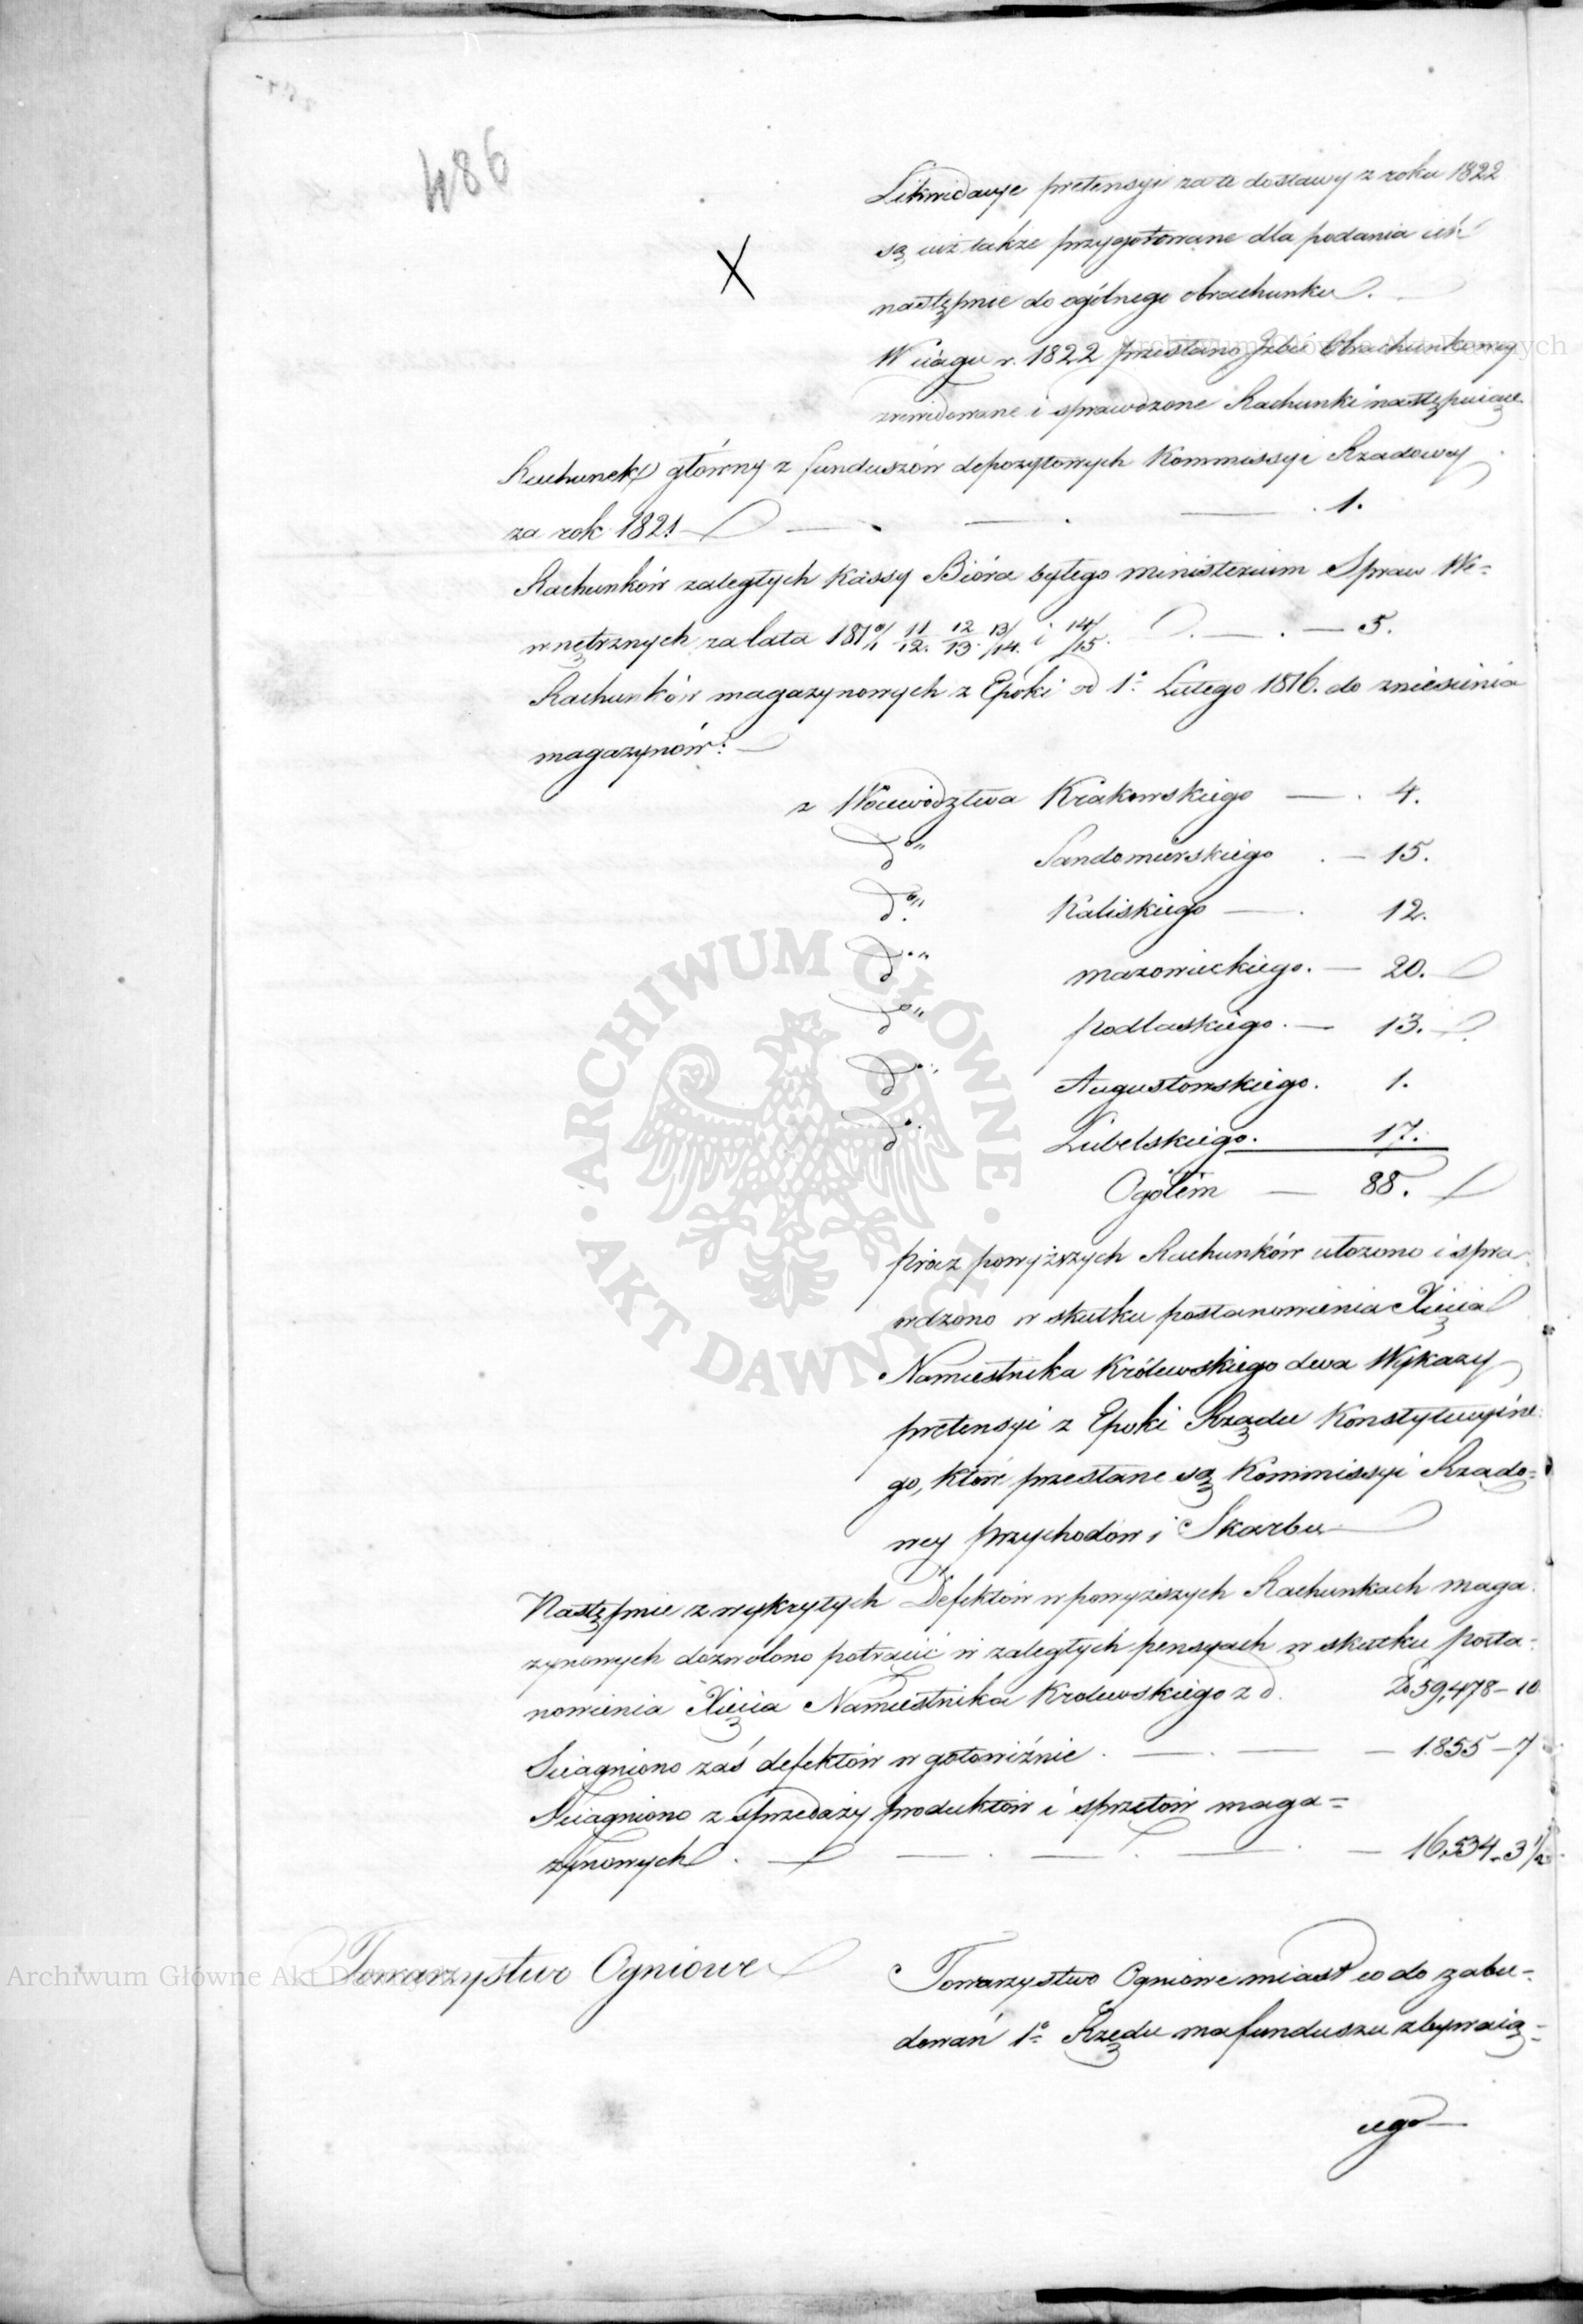 486
Likwidacye pretensyi za te dostawy z roku 1822
są iuż także przygotowane dla podania ich
następnie do ogólnego obrachunku.
W ciągu r. 1822 przesłano Izbie Obrachunkowey
zrewidowane i sprawdzone Rachunki następuiące
Rachunek główny z funduszów depozytowych Kommissyi Rządowey
za rok 1821 — 1.
Rachunków zaległych Kassy Bióra byłego ministerium Spraw We-
wnętrznych za lata 181 0/1 11/12. 12/13. 13/14. i 14/15. — 5.
Rachunków magazynowych z Epoki od 1o Lutego 1816. do zniesienia
magazynów:
z Woiewództwa Krakowskiego — 4.
do Sandomierskiego — 15.
do Kaliskiego — 12.
do mazowieckiego. — 20.
do podlaskiego. — 13.
do Augustowskiego. 1.
do Lubelskiego. 17.
Ogółem — 88.
prócz powyższych Rachunków ułożono i spra-
wdzono w skutku postanowienia Xięcia
Namiestnika Królewskiego dwa Wykazy
pretensyi z Epoki Rządu Konstytucyine-
go, które przesłane są Kommissyi Rządo-
wey Przychodów i Skarbu
Następnie z wykrytych Defektów w powyższych Rachunkach maga-
zynowych dozwolono potrącić w zaległych pensyach w skutku posta-
nowienia Xięcia Namiestnika Krolewskiego z d. 59,478 – 10
Sciągniono zaś defektów w gotowiźnie — 1.855 – 7
Sciągniono z sprzedaży produktów i sprzętów maga=
zynowych — 16,534 – 3 1/2
Towarzystwo Ogniowe
Towarzystwo Ogniowe miast co do zabu-
dowań 1o Rzędu ma funduszu zbywaią-
cego
ARCHIWUM GŁÓWNE AKT DAWNYCH
Archiwum Główne Akt Dawnych
Archiwum Główne Akt Dawnych